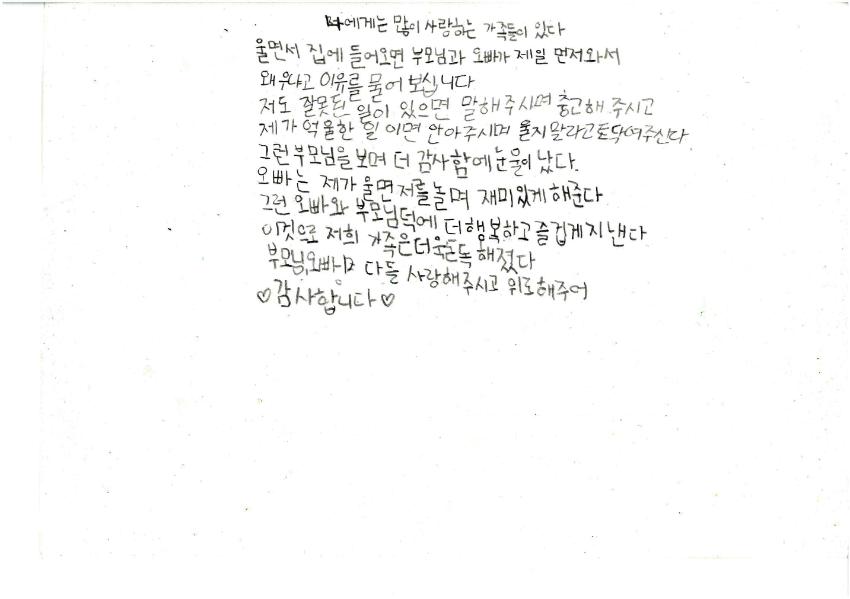 나에게는 많이 사랑하는 가족들이 있다
울면서 집에 들어오면 부모님과 오빠가 제일 먼저와서
왜우냐고 이유를 물어 보십니다
저도 잘못된 일이 있으면 말해주시며 충고해 주시고
제가 억울한 일 이면 안아주시며 울지말라고토닥여주신다
그런부모님을 보며 더 감사함에 눈물이 났다.
오빠는 제가 울면 저를 놀며 재미있게 해준다
그런 오빠와 부모님덕에 더행복하고 즐겁게지낸다
이것으로 저희 가족은더욱돈독 해졌다
부모님, 다들 사랑해주시고 위로해주어
♡감사합니다♡